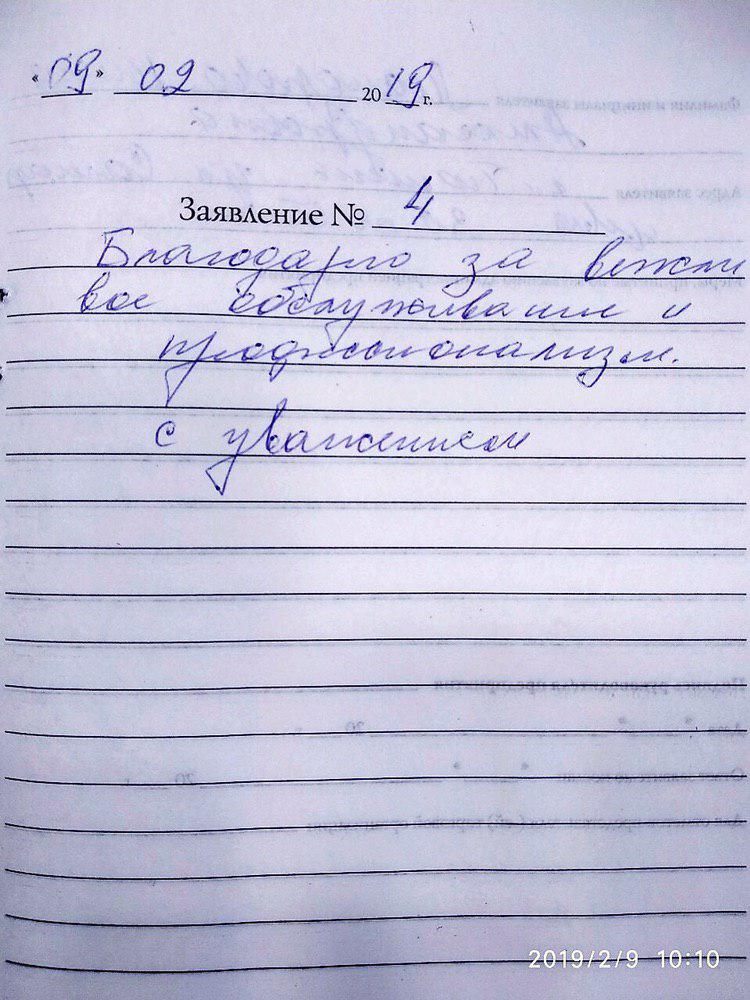 «09» 02 2019г.
Заявление № 4
Благодарю за вежли
вое обслуживание и
професионализм.
с уважением
2019/2/9 10:10